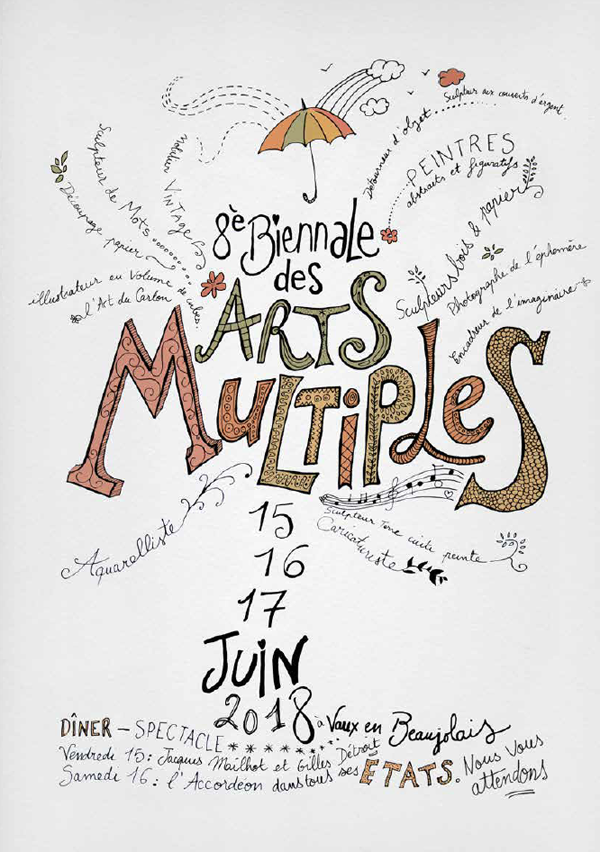 Sculpteur aux couverts d'argent
Détourneur d'objet
PEINTRES
abstraits et figuratifs
Sculpteur de Mots
mobilier VINTAGE
Découpage papier
8è Biennale
des
Sculpteurs bois & papier
Photographe de l'éphemère
Encadreur de l'imaginaire
illustrateur en volume de cubes.
l'Art du Carton
ARTS
MULTIPLES
15
Sculpteur Terre cuite peinte
Caricaturiste
Aquarelliste
16
17
JUIN
2018 à Vaux en Beaujolais
DÎNER - SPECTACLE
Vendredi 15: Jacques Mailhot et Gilles Détroit
Samedi 16: l'Accordéon dans tous ses ETATS. Nous Vous
attendons